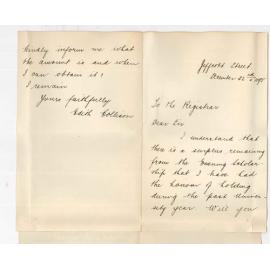 Jeffcott Street
December 22nd 1898
To the Registrar
Dear Sir
I understand that
there is a surplus remaining
from the Evening Scholar-
ship that I have had
the honour of holding
during the past Univer-
sity year. Will you
kindly inform me what
the amount is and when
I can obtain it?
I remain
Yours faithfully
Edith Collison